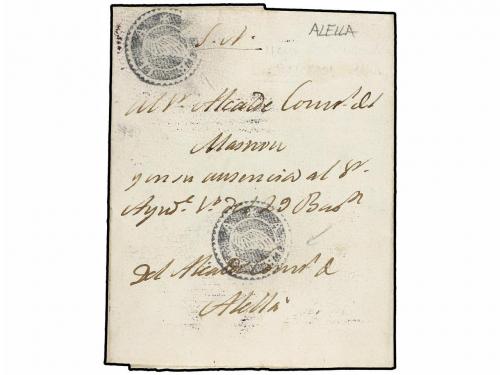 ALELLA
S. N.
Al Sr. Alcalde Const. de
Masnou
y en su ausencia al Sr.
Del Alcalde Const. de
Alella